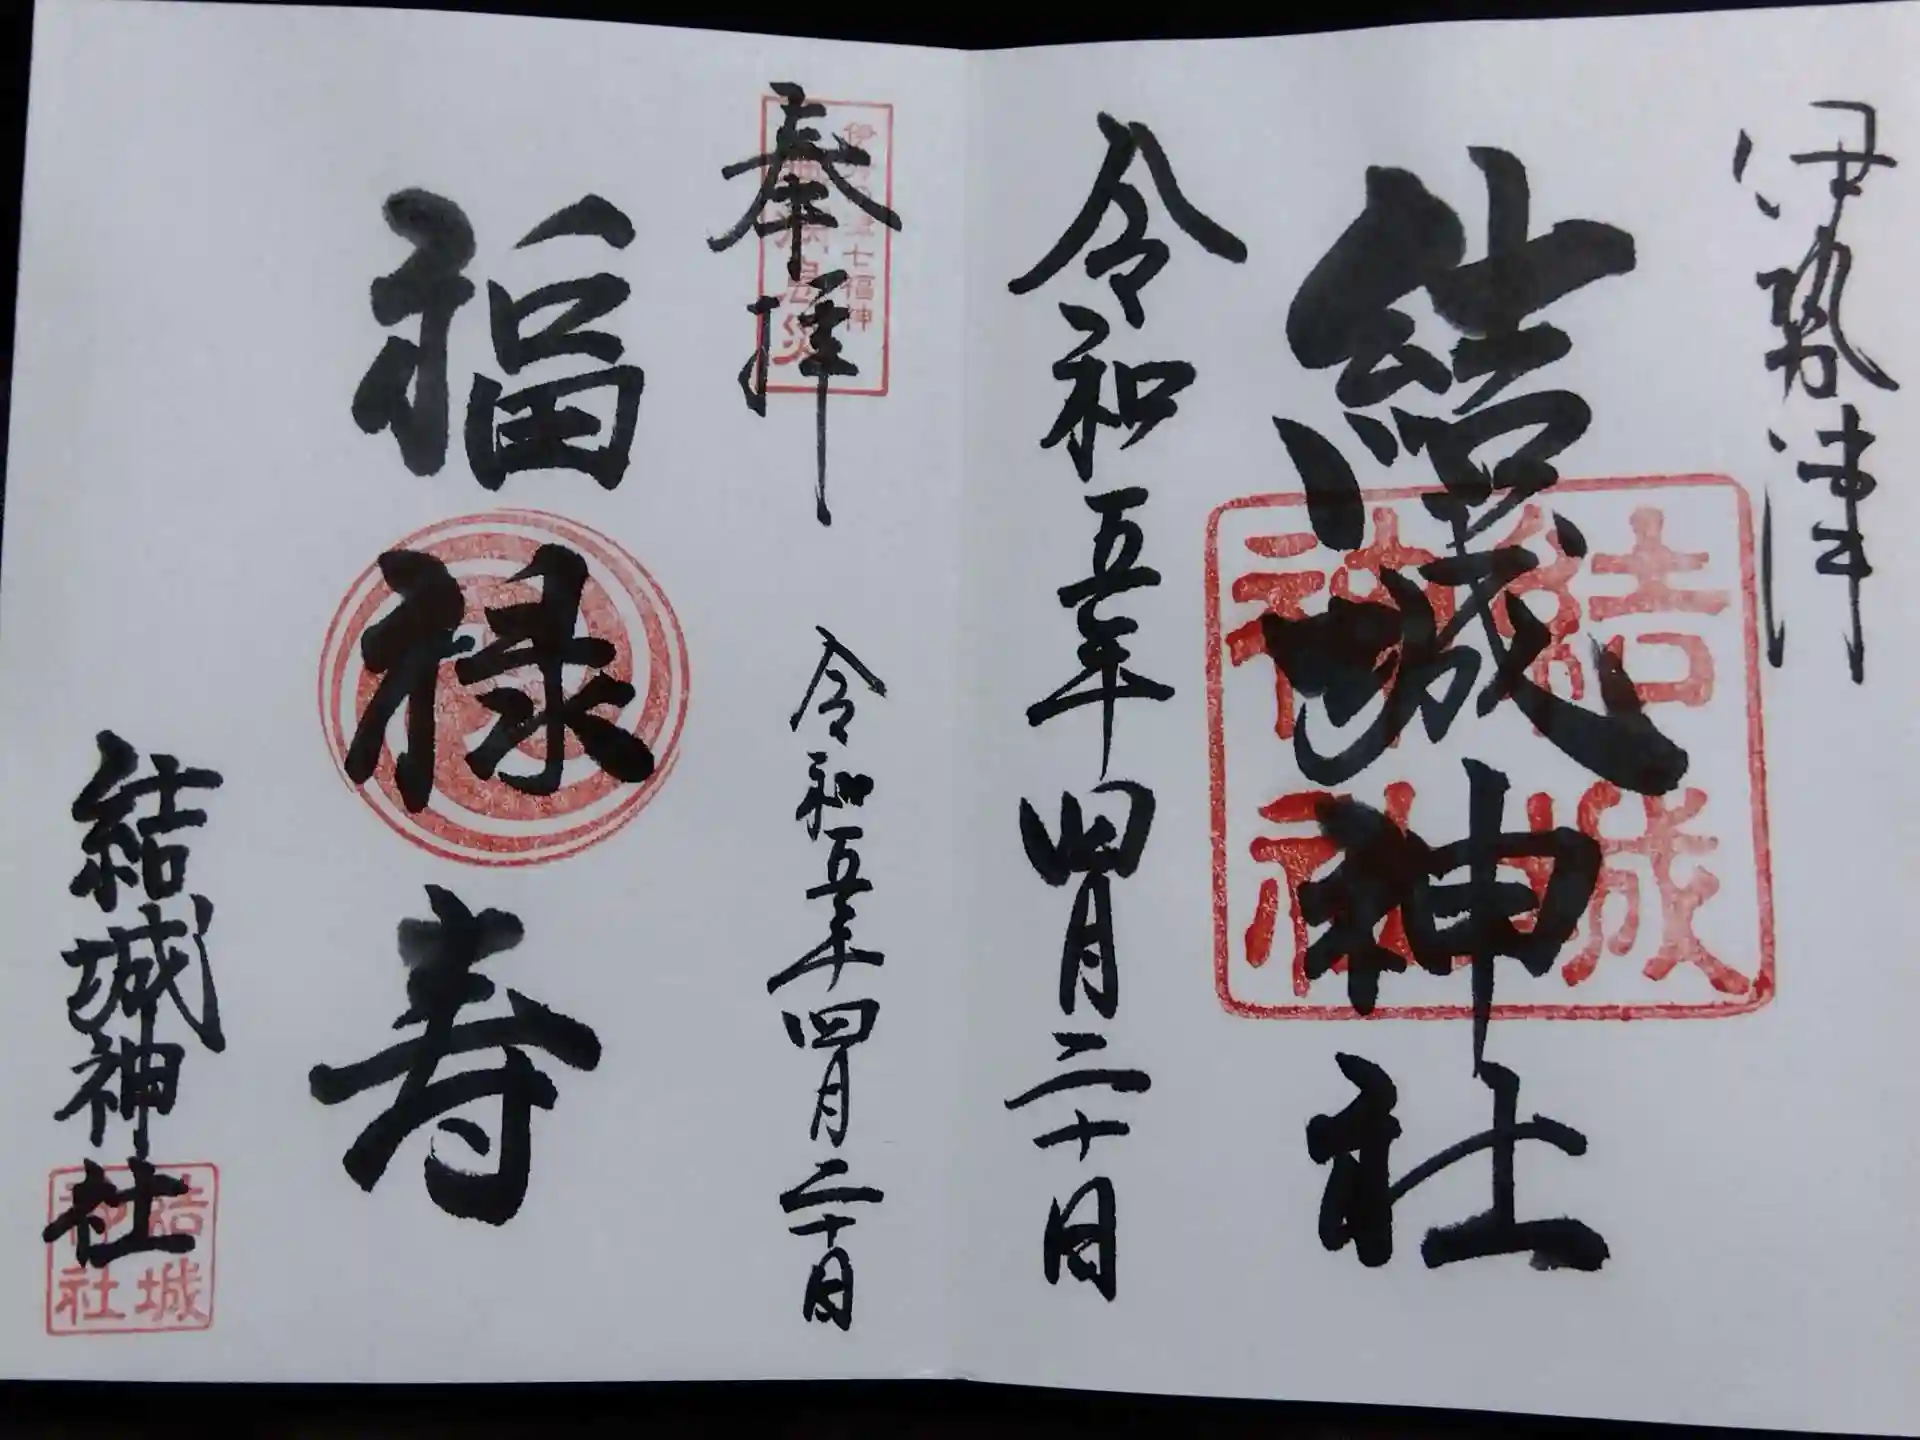 伊勢津
結城神社
結城
神社
令和五年四月二十日
奉拝
七福神
息災
令和五年四月二十日
福禄寿
結城神社
結城
神社